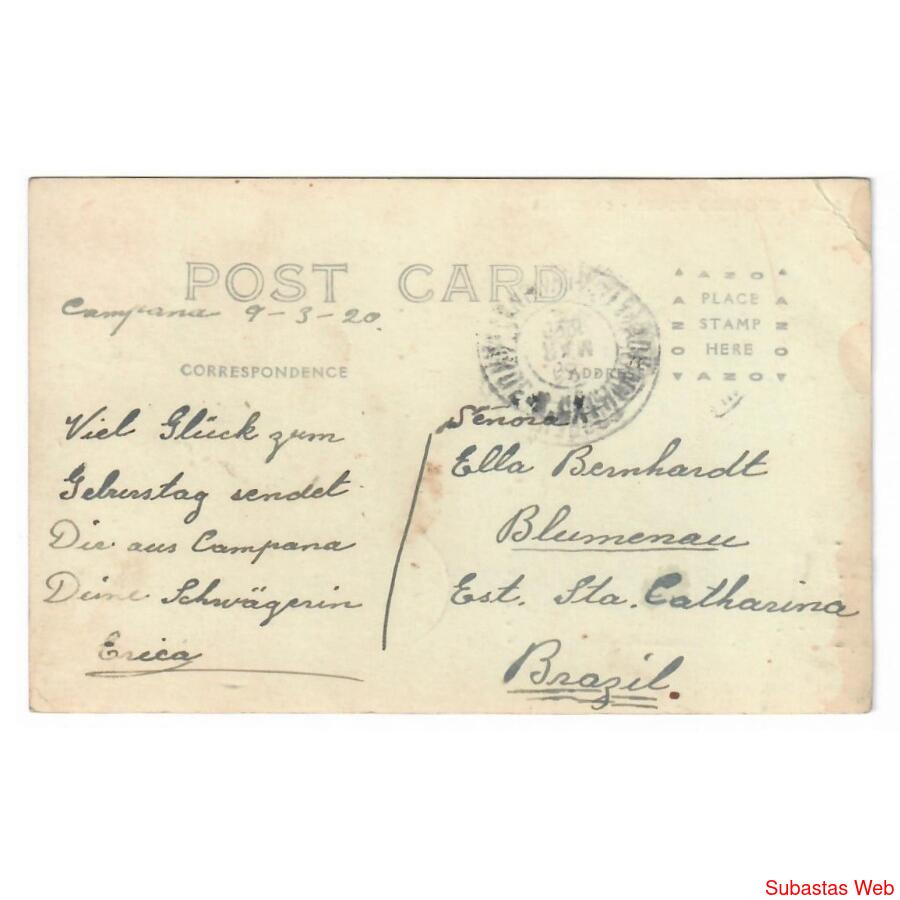 POST CARD
Campana 9-3-20.
CORRESPONDENCE
Viel Glück zum
Geburstag sendet
Dir aus Campana
Deine Schwägerin
Erica
AZO
PLACE
STAMP
HERE
AZO
AZO
AZO
Señora
Ella Bernhardt
Blumenau
Est. Sta. Catharina
Brazil.
Subastas Web